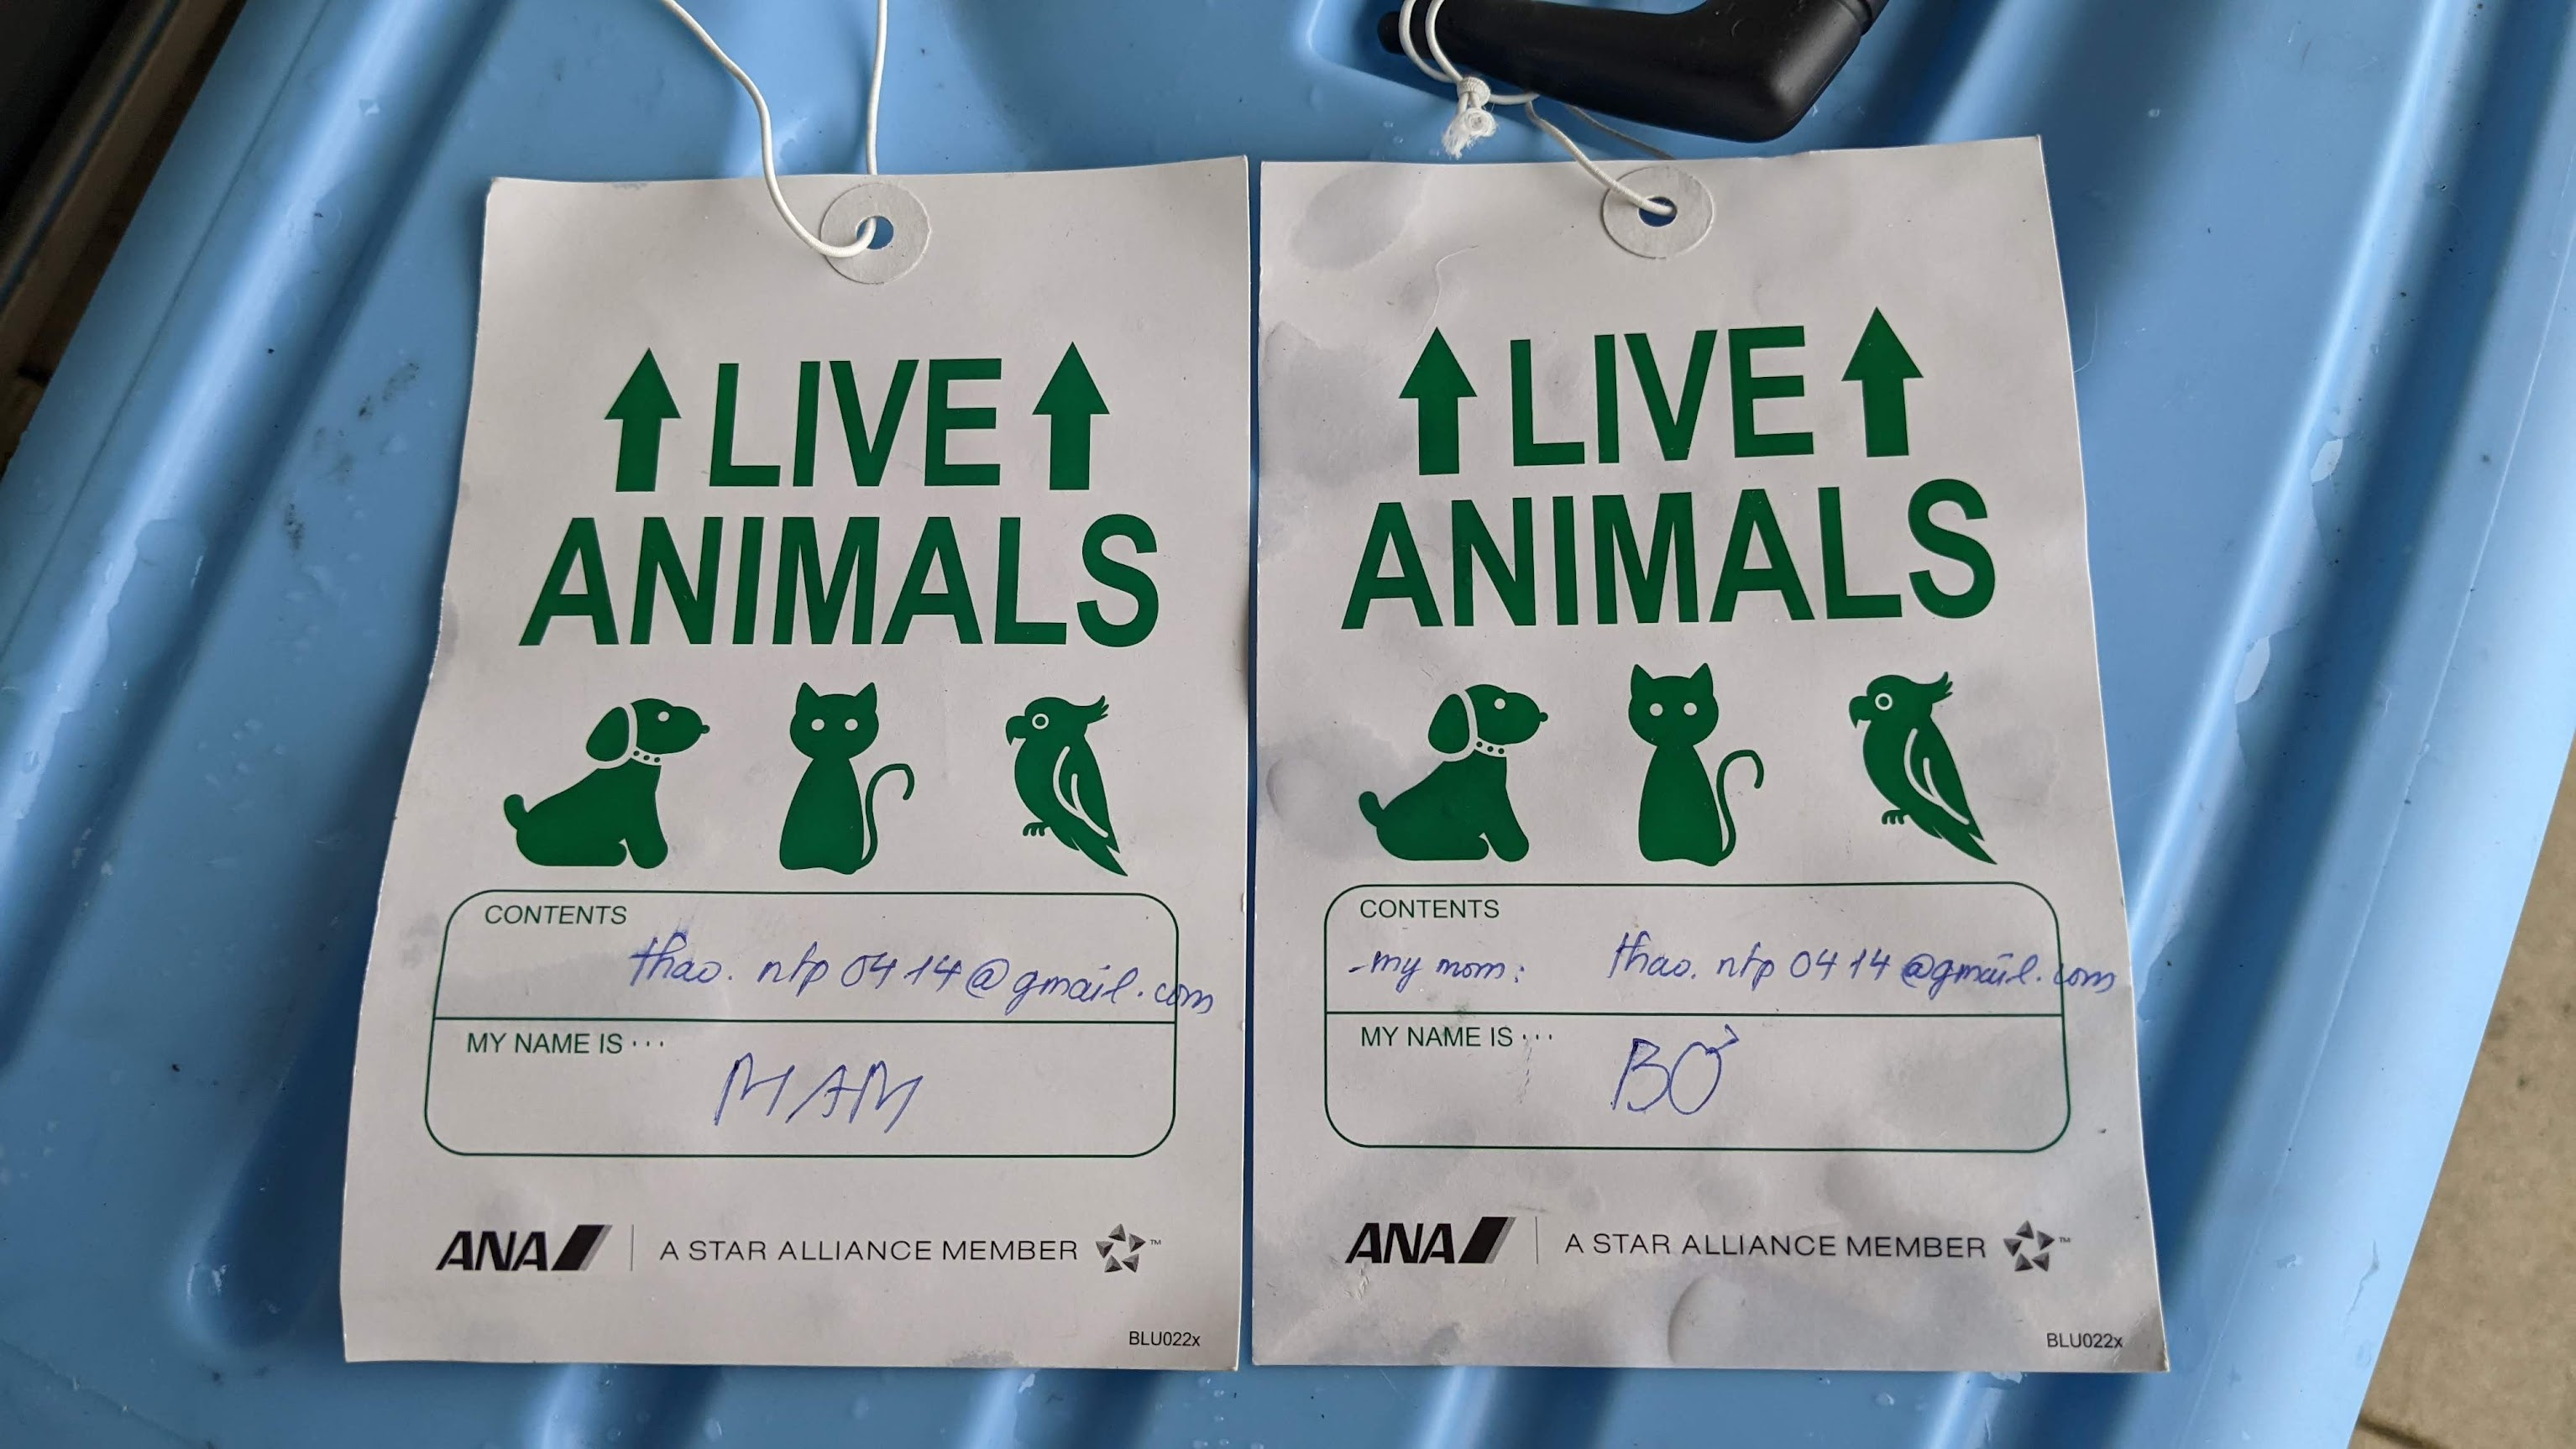 LIVE
ANIMALS
CONTENTS
thao.ntp0414@gmail.com
MY NAME IS ···
MAM
ANA
A STAR ALLIANCE MEMBER ™
BLU022x
LIVE
ANIMALS
CONTENTS
-my mom: thao.ntp0414@gmail.com
MY NAME IS ···
BƠ
ANA
A STAR ALLIANCE MEMBER ™
BLU022x